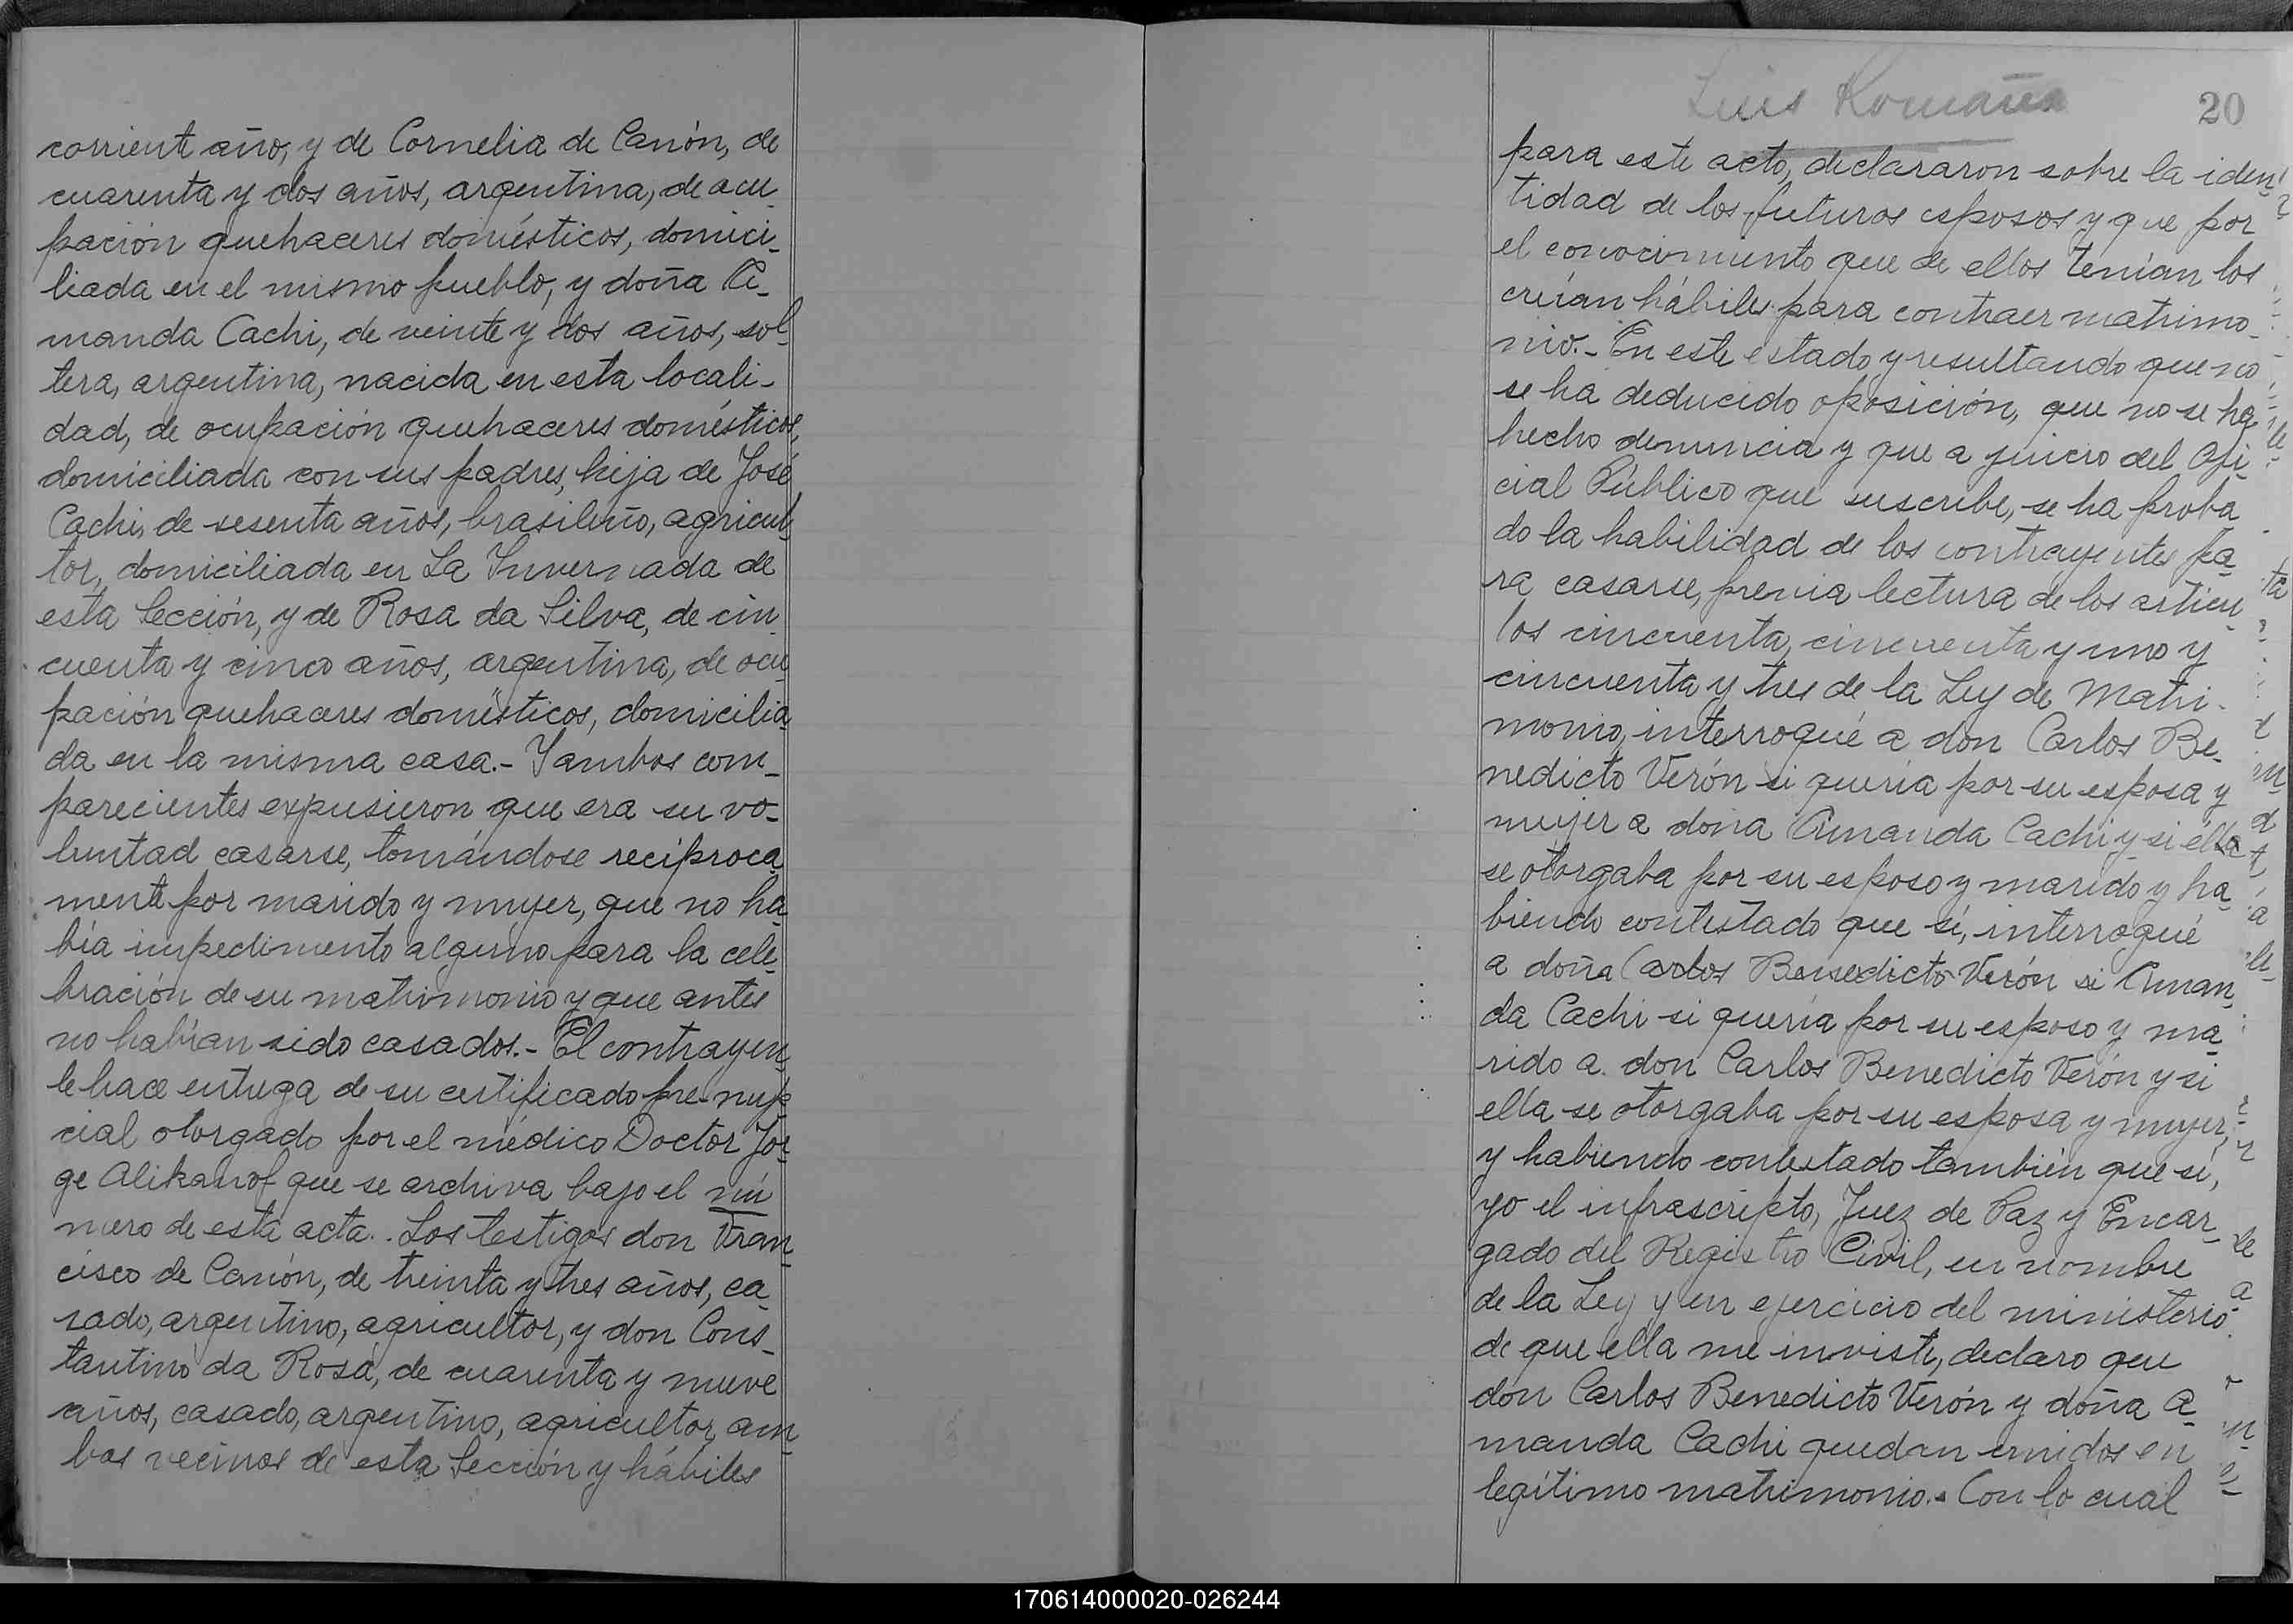 corriente año, y de Cornelia de Canón, de
cuarenta y dos años, argentina, de acu_
pación quehaceres domésticos, domici_
liada en el mismo pueblo, y doña A_
manda Cachi, de veinte y dos años, sol_
tera, argentina, nacida en esta locali_
dad, de ocupación quehaceres domésticos,
domiciliada con sus padres, hija de José
Cachi, de sesenta años, brasileño, agricul_
tor, domiciliada en La Invernada de
esta Sección, y de Rosa da Silva, de cin_
cuenta y cinco años, argentina, de ocu_
pación quehaceres domésticos, domicilia_
da en la misma casa.- Y ambos com_
parecientes expusieron que era su vo_
luntad casarse, tomándose reciproca_
mente por marido y mujer, que no ha_
bía impedimento alguno para la cele_
bración de su matrimonio y que antes
no habían sido casados.- El contrayen_
te hace entrega de su certificado pre-nup_
cial otorgado por el médico Doctor Jor_
ge Alikanof que se archiva bajo el nú_
mero de esta acta.. Los testigos don Fran_
cisco de Canón, de treinta y tres años, ca_
sado, argentino, agricultor, y don Cons_
tantino da Rosa, de cuarenta y nueve
años, casado, argentino, agricultor, am_
bos vecinos de esta Sección y hábiles
Luis Romaña
20
para este acto, declararon sobre la iden_
tidad de los futuros esposos y que por
el conocimiento que de ellos tenían los
creían hábiles para contraer matrimo_
nio.- En este estado y resultando que no
se ha deducido oposición, que no se ha
hecho denuncia y que a juicio del Ofi_
cial Público que suscribe, se ha proba_
do la habilidad de los contrayentes pa_
ra casarse, previa lectura de los artícu_
los cincuenta, cincuenta y uno y
cincuenta y tres de la Ley de Matri_
monio, interrogué a don Carlos Be_
nedicto Verón si quería por su esposa y
mujer a doña Amanda Cachi y si ella
se otorgaba por su esposo y marido y ha_
biendo contestado que sí, interrogué
a doña Carlos Benedicto Verón si Aman_
da Cachi si quería por su esposo y ma_
rido a don Carlos Benedicto Verón y si
ella se otorgaba por su esposa y mujer,
y habiendo contestado también que sí,
yo el infrascripto, Juez de Paz y Encar_
gado del Registro Civil, en nombre
de la Ley y en ejercicio del ministerio
de que ella me inviste, declaro que
don Carlos Benedicto Verón y doña A_
manda Cachi quedan unidos en
legítimo matrimonio.- Con lo cual
170614000020-026244